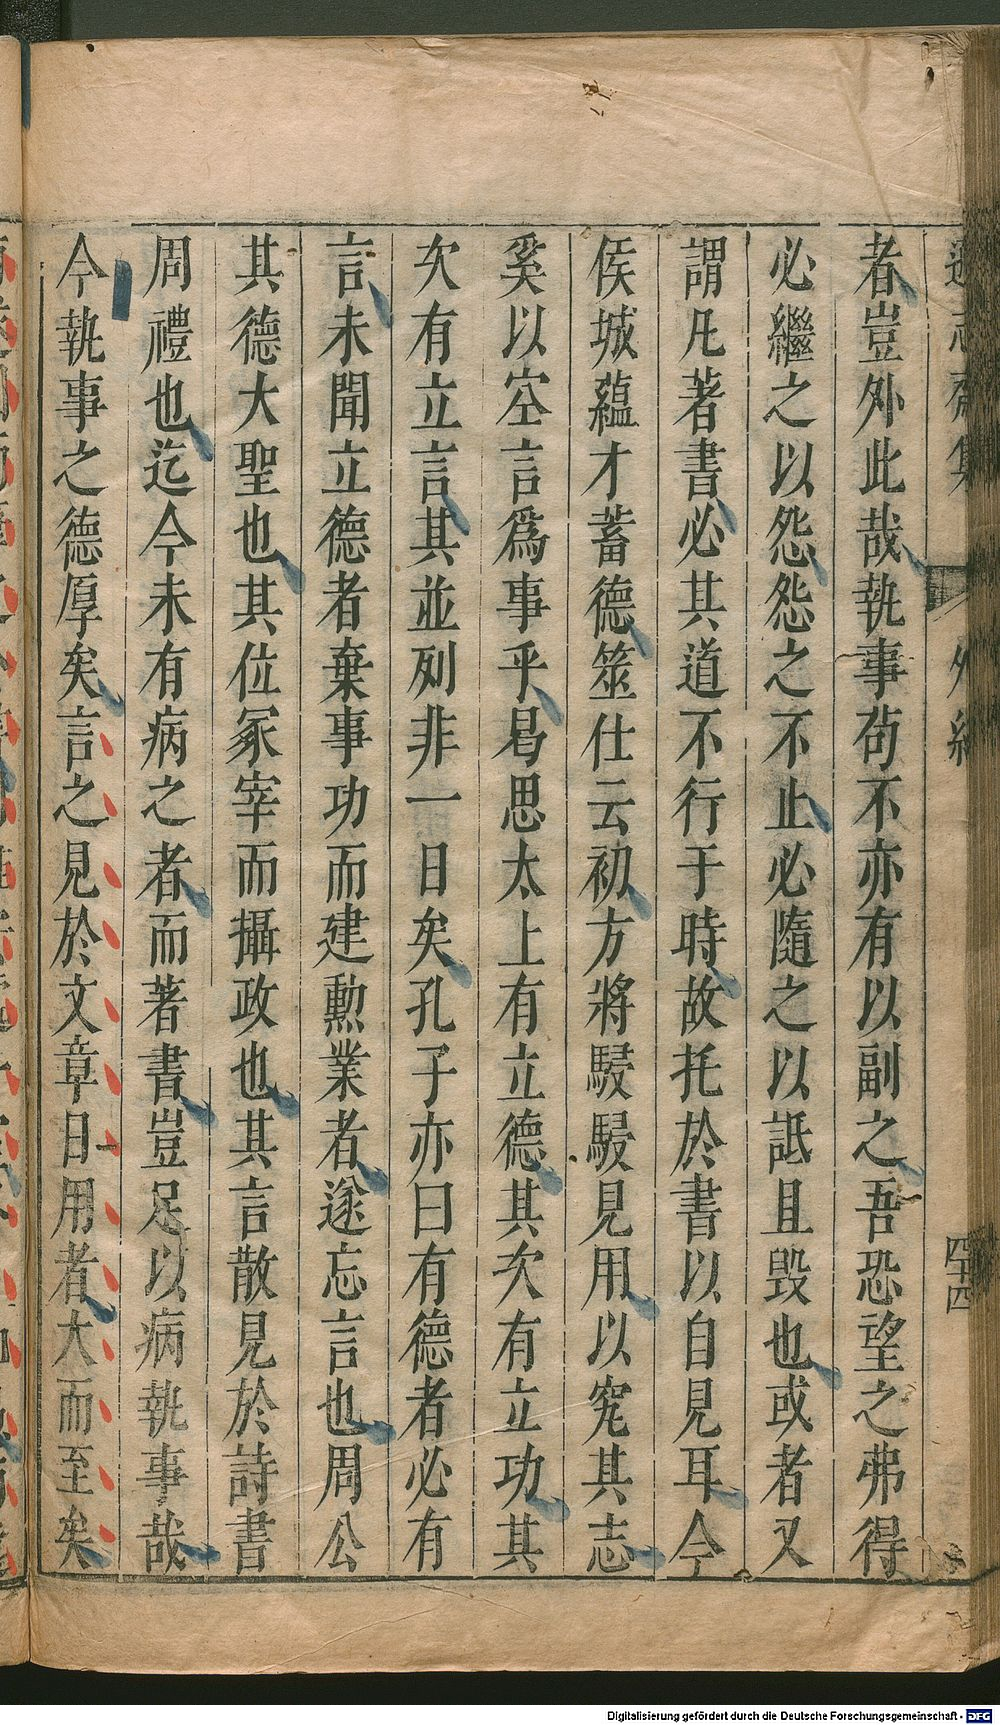 者豈外此哉執事苟不亦有以副之吾恐望之弗得
必繼之以怨怨之不止必隨之以詆且毀也或者又
謂凡著書必其道不行于時故托於書以自見耳今
侯城蘊才蓄德筮仕云初方將駸駸見用以究其志
奚以空言爲事乎曷思太上有立德其次有立功其
次有立言其並列非一日矣孔子亦曰有德者必有
言未聞立德者棄事功而建勳業者遂忘言也周公
其德大聖也其位冢宰而攝政也其言散見於詩書
周禮也迄今未有病之者而著書豈足以病執事哉
今執事之德厚矣言之見於文章日用者大而至矣
志齋集
外紀
四十四
Digitalisierung gefördert durch die Deutsche Forschungsgemeinschaft - DFG